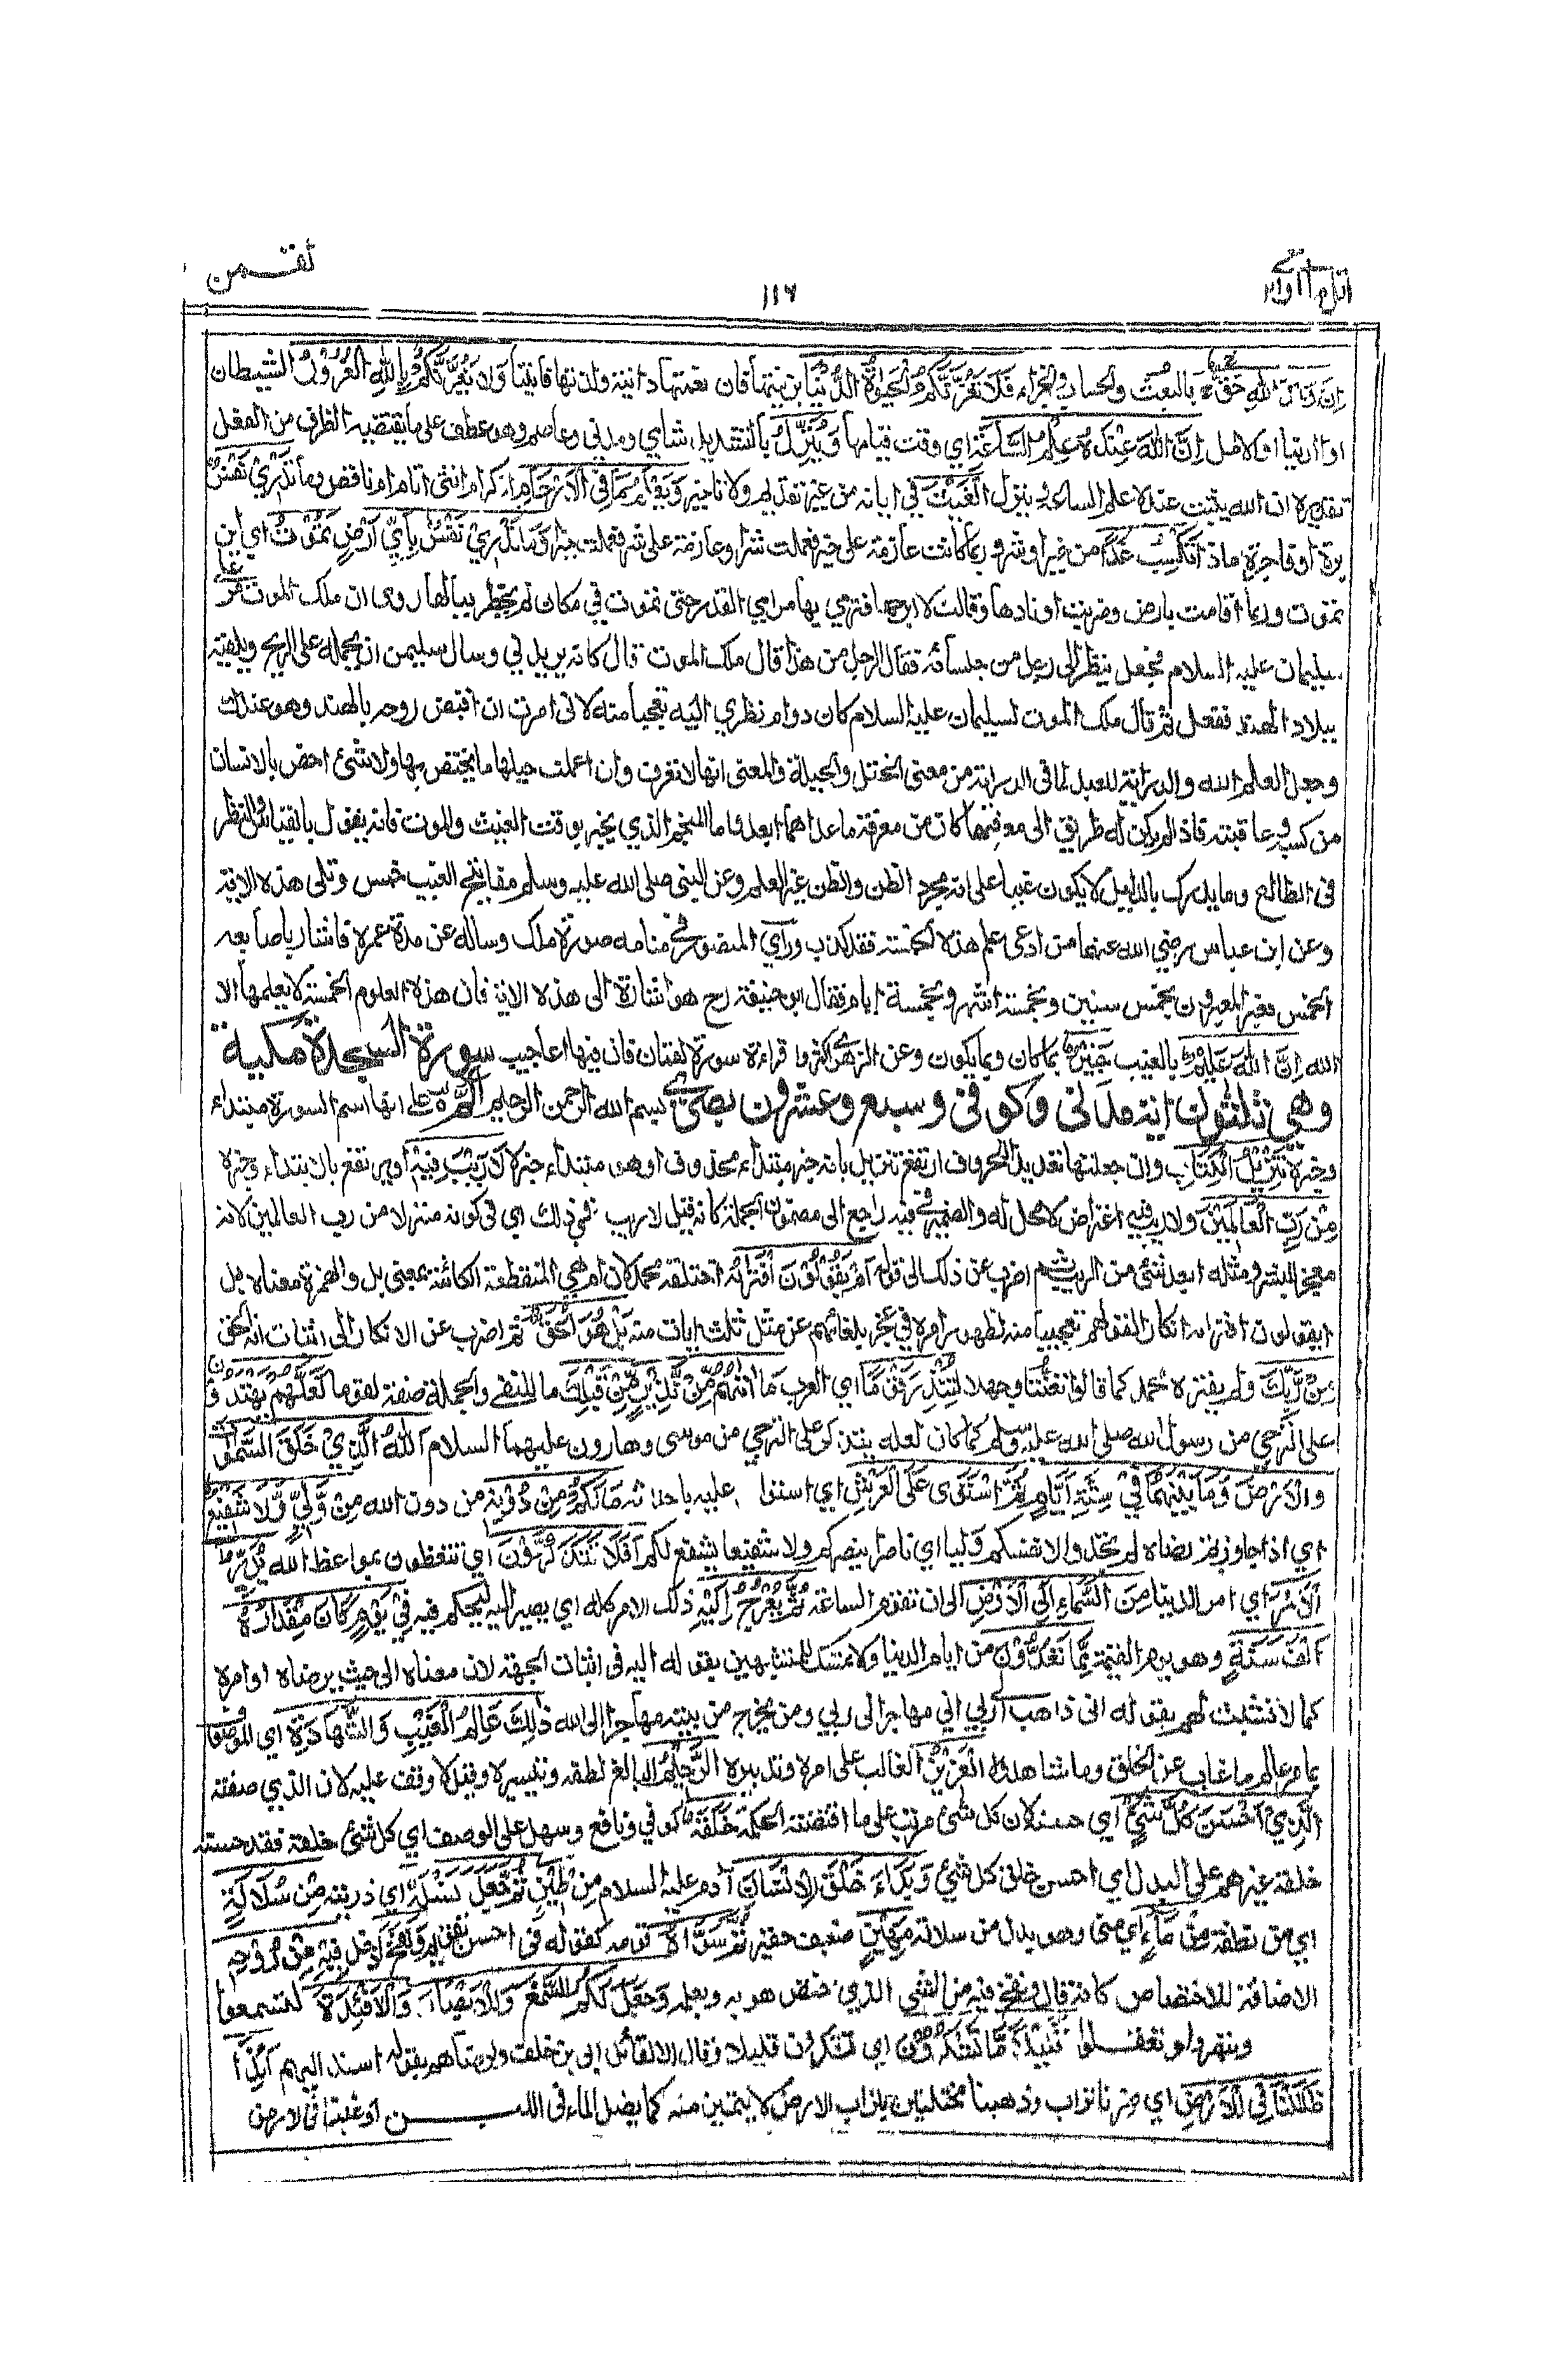 اتل ما اوحي
١١٦
لقمن
اِنَّ وَعْدَ اللّٰهِ حَقٌّ بالبعث والحساب والجزاء فَلَا تَغُرَّنَّكُمُ الْحَيٰوةُ الدُّنْيَا بزينتها فان نعمتها دانية ولذتها فانية وَلَا يَغُرَّنَّكُمْ بِاللّٰهِ الْغَرُوْرُ الشيطان
او الدنيا او الامل اِنَّ اللّٰهَ عِنْدَهٗ عِلْمُ السَّاعَةِ اي وقت قيامها وَيُنَزِّلُ بالتشديد شامي ومدني وعاصم وهو عطف على ما يقتضيه الظرف من الفعل
تقديره ان الله يثبت عنده علم الساعة وينزل الْغَيْثَ في ابانه من غير تقديم ولا تاخير وَيَعْلَمُ مَا فِي الْاَرْحَامِ اذكر ام انثى اتام ام ناقص وَمَا تَدْرِيْ نَفْسٌ
برة او فاجرة مَاذَا تَكْسِبُ غَدًا من خير او شر وربما كانت عازمة على خير فعملت شرا وعازمة على شر فعملت خيرا وَمَا تَدْرِيْ نَفْسٌ بِاَيِّ اَرْضٍ تَمُوْتُ اي اين
تموت وربما اقامت بارض وضربت اوتادها وقالت لا ابرحها فترمي بها مرامي القدر حتى تموت في مكان لم يخطر ببالها روى ان ملك الموت مر على
سليمان عليه السلام فجعل ينظر الى رجل من جلسائه فقال الرجل من هذا قال ملك الموت قال كانه يريدني وسال سليمن ان يحمله على الريح ويلقيه
ببلاد الهند ففعل ثم قال ملك الموت لسليمان عليه السلام كان دوام نظري اليه تعجبا منه لاني امرت ان اقبض روحه بالهند وهو عندك
وجعل العلم لله والدراية للعبد لما في الدراية من معنى الختل والحيلة والمعنى انها لا تعرف وان اعملت حيلها ما يختص بها ولا شئ اخص بالانسان
من كسبه وعاقبته فاذا لم يكن له طريق الى معرفتهما كان من معرفة ما عداهما ابعد واما المنجم الذي يخبر بوقت الغيث والموت فانه يقول بالقياس والنظر
فى الطالع وما يدرك بالدليل لا يكون غيبا على انه مجرد الظن والظن غير العلم وعن النبي صلى الله عليه وسلم مفاتيح الغيب خمس وتلى هذه الاية
وعن ابن عباس رضي الله عنهما من ادعى علم هذه الخمسة فقد كذب وراي المنصور في منامه صورة ملك وساله عن مدة عمره فاشار باصابعه
الخمس فعبرها المعبرون بخمس سنين وبخمسة اشهر وبخمسة ايام فقال ابو حنيفة رح هو اشارة الى هذه الاية فان هذه العلوم الخمسة لا يعلمها الا
الله اِنَّ اللّٰهَ عَلِيْمٌ بالغيب خَبِيْرٌ بما كان وبما يكون وعن الزهري اكثروا قراءة سورة لقمان فان فيها اعاجيب سورة السجدة مكية
وهي ثلثون اية مدني وكوفى وسبع وعشرون بصري بسم الله الرحمن الرحيم الٓمّٓ على انها اسم السورة مبتداء
وخبره تَنْزِيْلُ الْكِتَابِ وان جعلتها تعديدا للحروف ارتفع تنزيل بانه خبر مبتداء محذوف او هو مبتداء خبره لَا رَيْبَ فِيْهِ او يرتفع بالابتداء وخبره
مِنْ رَّبِّ الْعَالَمِيْنَ ولا ريب فيه اعتراض لا محل له والضمير في فيه راجع الى مضمون الجملة كانه قيل لا ريب في ذلك اي في كونه منزلا من رب العالمين لانه
معجز للبشر ومثله ابعد شئ من الريب ثم اضرب عن ذلك الى قوله اَمْ يَقُوْلُوْنَ افْتَرٰىهُ اي اختلقه محمد لان ام هي المنقطعة الكائنة بمعنى بل والهمزة معناه بل
ايقولون افتراه انكارا لقولهم وتعجيبا منه لظهور امره في عجز بلغائهم عن مثل ثلث ايات منه بَلْ هُوَ الْحَقُّ ثم اضرب عن الانكار الى اثبات انه الحق
مِنْ رَّبِّكَ ولم يفتره محمد كما قالوا تعنتا وجهلا لِتُنْذِرَ قَوْمًا اي العرب مَا اَتٰهُمْ مِّنْ نَّذِيْرٍ مِّنْ قَبْلِكَ ما للنفي والجملة صفة لقوما لَعَلَّهُمْ يَهْتَدُوْنَ
على الترجي من رسول الله صلى الله عليه وسلم كما كان لعله يتذكر على الترجي من موسى وهارون عليهما السلام اَللّٰهُ الَّذِيْ خَلَقَ السَّمٰوٰتِ
وَالْاَرْضَ وَمَا بَيْنَهُمَا فِيْ سِتَّةِ اَيَّامٍ ثُمَّ اسْتَوٰى عَلَى الْعَرْشِ اي استولى عليه باحداثه مَا لَكُمْ مِّنْ دُوْنِهٖ من دون الله مِنْ وَّلِيٍّ وَّلَا شَفِيْعٍ
اي اذا جاوزتم رضاه لم تجدوا لانفسكم وليا اي ناصرا ينصركم ولا شفيعا يشفع لكم اَفَلَا تَتَذَكَّرُوْنَ اي تتعظون بمواعظ الله يُدَبِّرُ
الْاَمْرَ اي امر الدنيا مِنَ السَّمَاءِ اِلَى الْاَرْضِ الى ان تقوم الساعة ثُمَّ يَعْرُجُ اِلَيْهِ ذلك الامر كله اي يصير اليه ليحكم فيه فِيْ يَوْمٍ كَانَ مِقْدَارُهٗ
اَلْفَ سَنَةٍ وهو يوم القيمة مِّمَّا تَعُدُّوْنَ من ايام الدنيا ولا متمسك للمشبهين بقوله اليه فى اثبات الجهة لان معناه الى حيث يرضاه او امره
كما لا تشبث لهم بقوله انى ذاهب الى ربي اني مهاجر الى ربي ومن يخرج من بيته مهاجرا الى الله ذٰلِكَ عَالِمُ الْغَيْبِ وَالشَّهَادَةِ اي الموصوف
بما مر عالم ما غاب عن الخلق وما شاهدوه الْعَزِيْزُ الغالب على امره وتدبيره الرَّحِيْمُ البالغ لطفه وتيسيره وقيل لا وقف عليه لان الذي صفته
الَّذِيْ اَحْسَنَ كُلَّ شَيْءٍ اي حسنه لان كل شئ مرتب على ما اقتضته الحكمة خَلَقَهٗ كوفي ونافع وسهل على الوصف اي كل شئ خلقه فقد حسنه
خلقه غيرهم على البدل اي احسن خلق كل شئ وَبَدَاَ خَلْقَ الْاِنْسَانِ آدم عليه السلام مِنْ طِيْنٍ ثُمَّ جَعَلَ نَسْلَهٗ اي ذريته مِنْ سُلَالَةٍ
اي من نطفة مِّنْ مَّاءٍ اي منى وهو بدل من سلالة مَّهِيْنٍ ضعيف حقير ثُمَّ سَوّٰىهُ قومه كقوله فى احسن تقويم وَنَفَخَ ادخل فِيْهِ مِنْ رُّوْحِهٖ
الاضافة للاختصاص كانه قال ونفخ فيه من الشئ الذي اختص هو به وبعلمه وَجَعَلَ لَكُمُ السَّمْعَ وَالْاَبْصَارَ وَالْاَفْئِدَةَ لتسمعوا
وتبصروا وتعقلوا قَلِيْلًا مَّا تَشْكُرُوْنَ اي تشكرون قليلا وَقَالُوْا القائل ابي بن خلف ولرضاهم بقوله اسند اليهم ءَاِذَا
ضَلَلْنَا فِي الْاَرْضِ اي صرنا ترابا وذهبنا مختلطين بتراب الارض لا يتميز منه كما يضل الماء فى اللبن او غبنا فى الارض